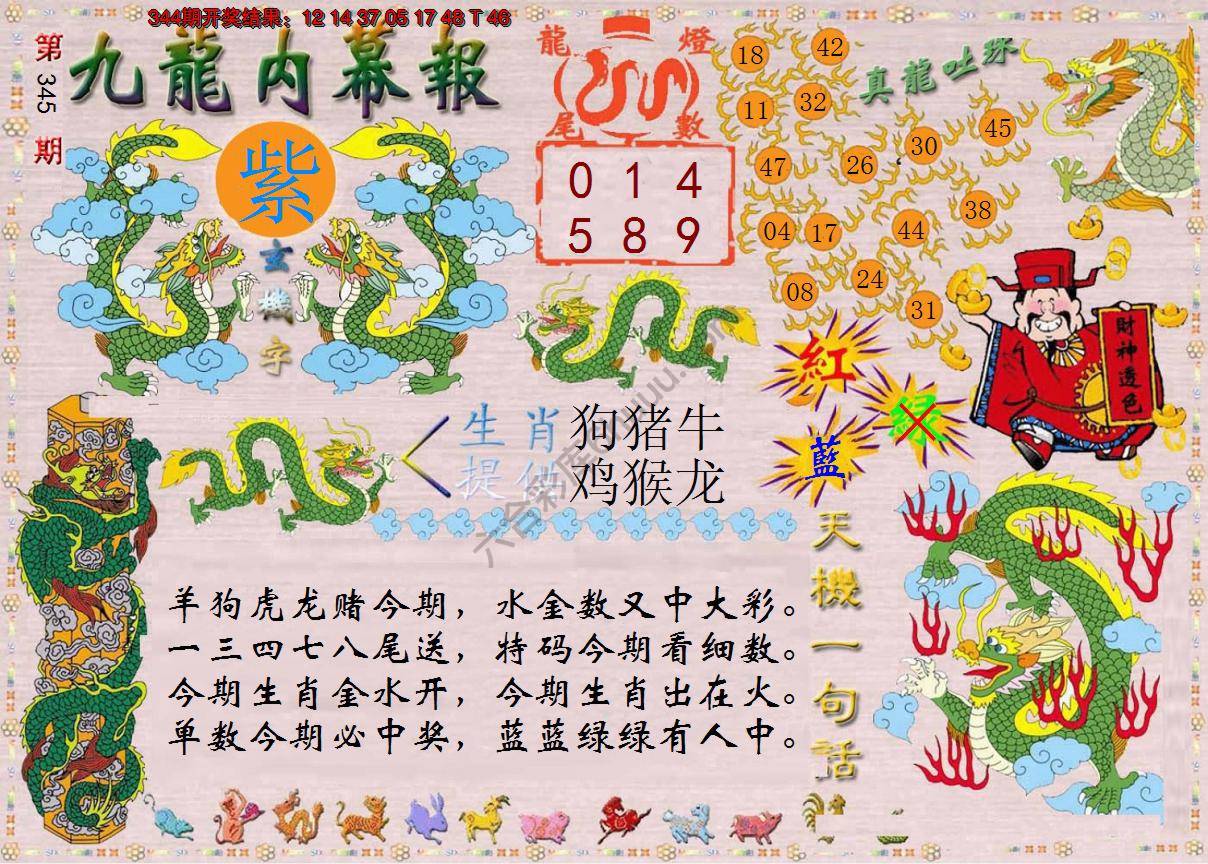 344期开奖结果：12 14 37.05 17 48 T 46
第345期
九龍内幕報
紫
玄機字
龍燈
尾數
0 1 4
5 8 9
真龍吐珠
18 42
11 32
47 26 30 45
04 17 44 38
08 24 31
財神透色
紅
绿
藍
生肖
提供
狗猪牛
鸡猴龙
天機一句話
羊狗虎龙赌今期，水金数又中大彩。
一三四七八尾送，特码今期看细数。
今期生肖金水开，今期生肖出在火。
单数今期必中奖，蓝蓝绿绿有人中。